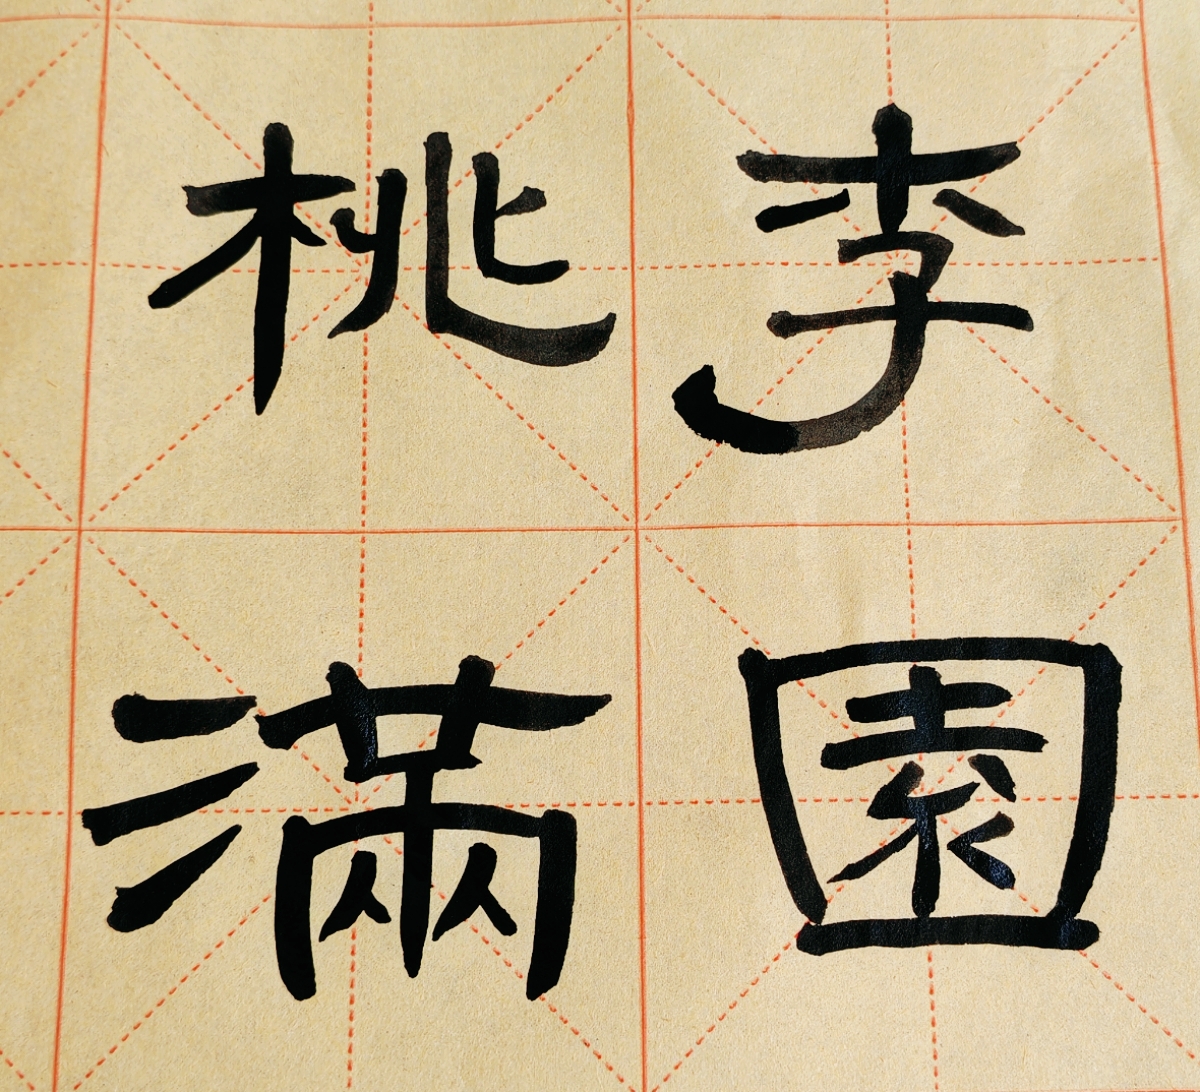 桃李
滿園